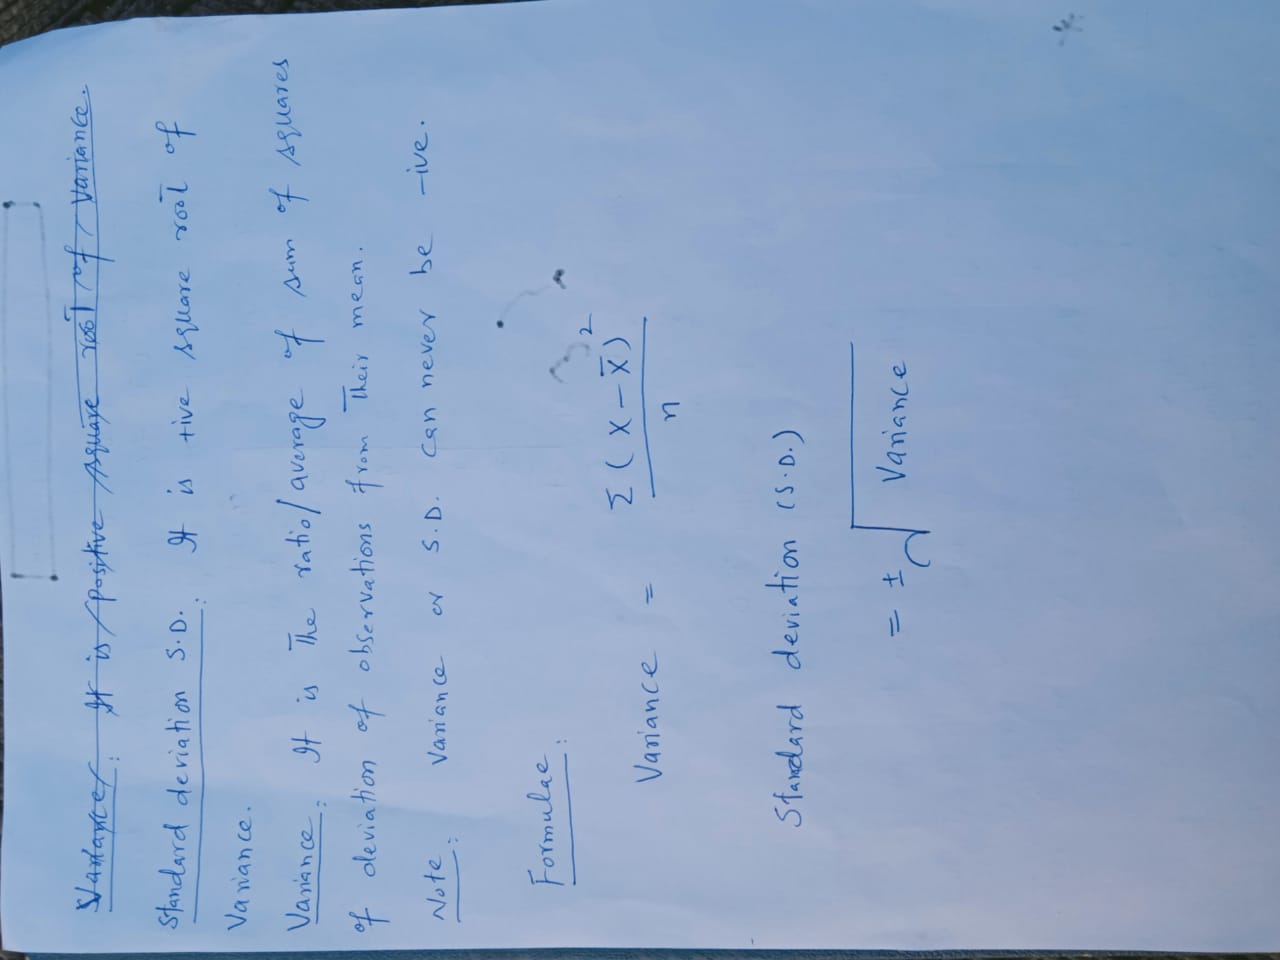 Variance: It is positive square root of Variance.
Standard deviation S.D.: It is +ive square root of
Variance.
Variance: It is The ratio/average of sum of squares
of deviation of observations from Their mean.
Note: Variance or S.D. can never be -ive.
Formulae:
Variance = Σ(x-x̄)² / n
Standard deviation (S.D.)
= ±√Variance